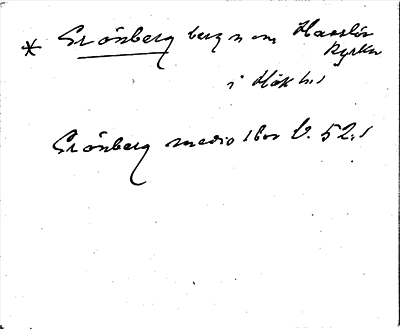 * Grönberg berg n om Hasslöv
kyrka
i Hök h:d
Grönberg medio 1600 V. 52.1